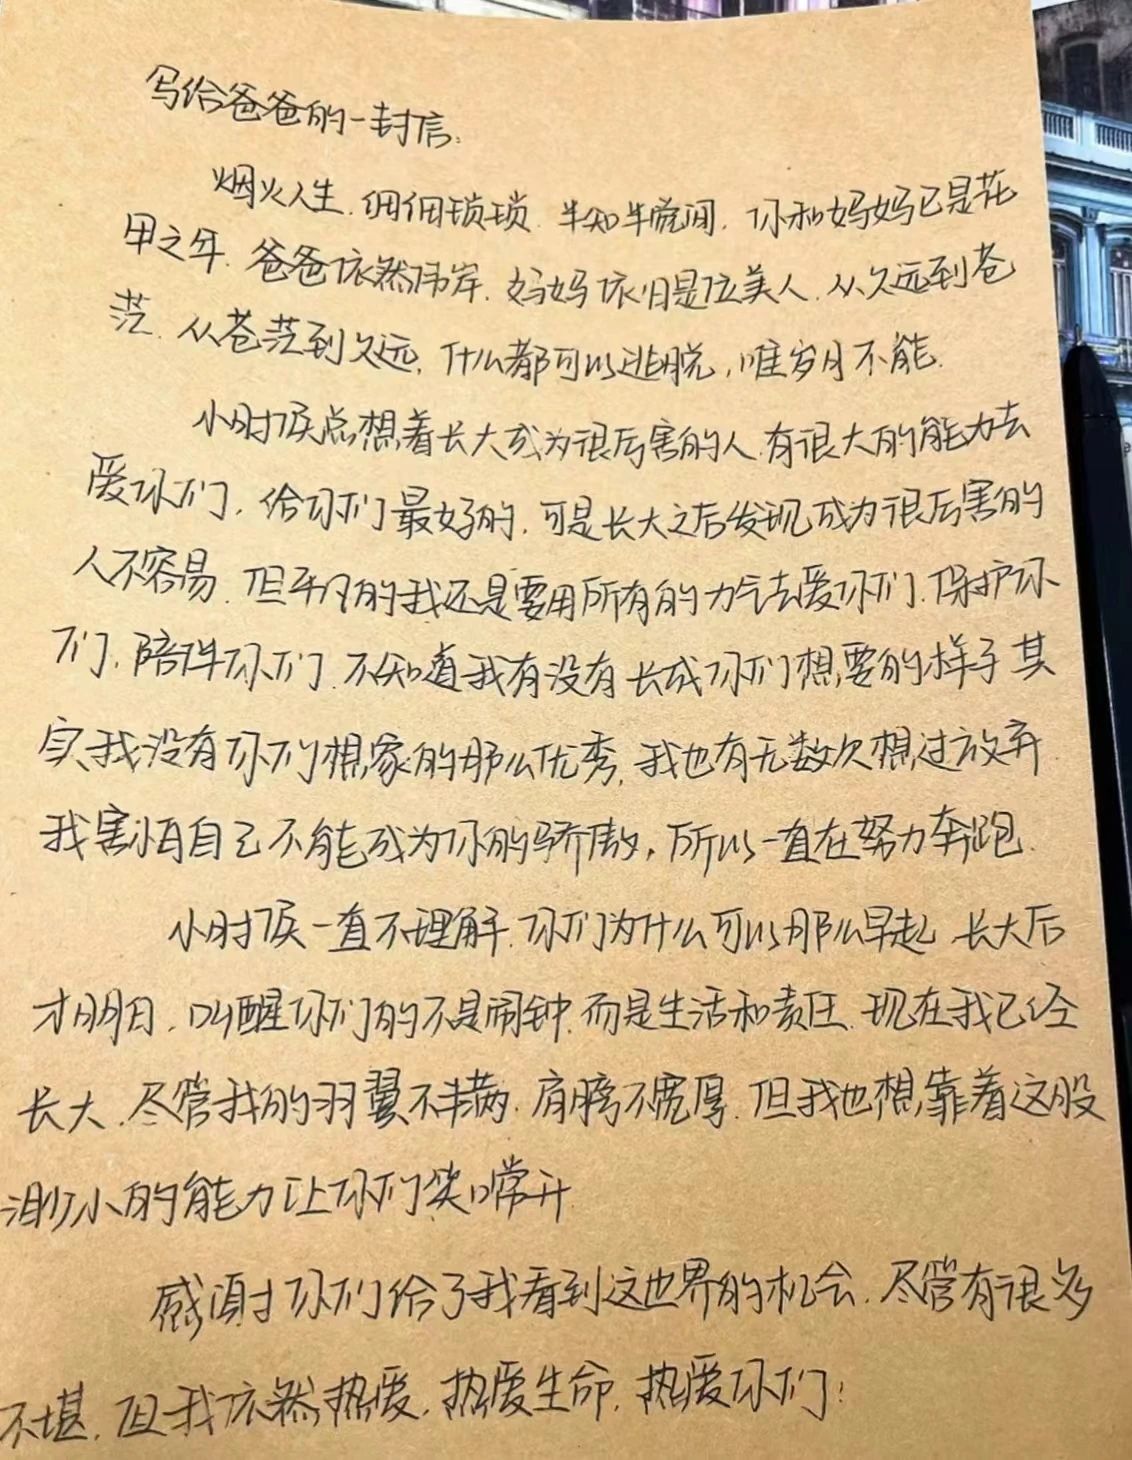 写给爸爸的一封信:
烟火人生.佣佣琐琐.半知半晓间.你和妈妈已是花
甲之年.爸爸依然伟岸.妈妈依旧是位美人.从久远到苍
茫.从苍茫到久远,什么都可以逃脱,唯岁月不能.
小时候总想着长大成为很厉害的人.有很大的能力去
爱你们,给你们最好的.可是长大之后发现成为很厉害的
人不容易.但平凡的我还是要用所有的力气去爱你们.保护你
们.陪伴你们.不知道我有没有长成你们想要的样子其
实我没有你们想象的那么优秀.我也有无数次想过放弃
我害怕自己不能成为你的骄傲,所以一直在努力奔跑.
小时候一直不理解.你们为什么可以那么早起.长大后
才明白.叫醒你们的不是闹钟.而是生活和责任.现在我已经
长大.尽管我的羽翼不丰满.肩膀不宽厚.但我也想靠着这股
渺小的能力让你们笑口常开
感谢你们给了我看到这世界的机会.尽管有很多
不堪.但我依然热爱.热爱生命.热爱你们!